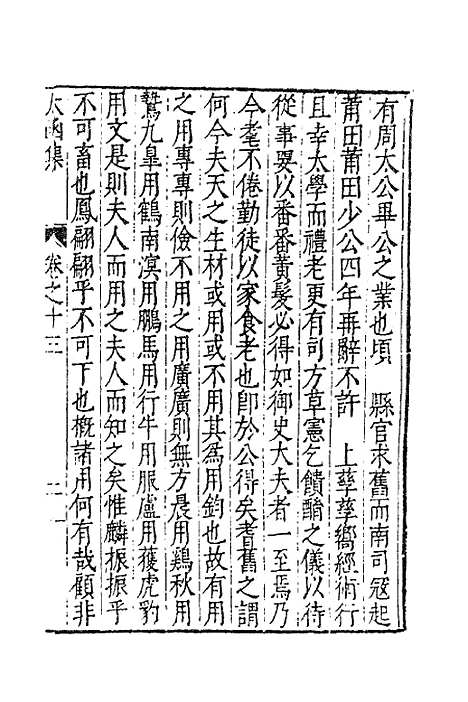 有周太公畢公之業也頃　縣官求舊而南司寇起
莆田莆田少公四年再辭不許　上孳孳嚮經術行
且幸太學而禮老更有司方草憲乞饋酳之儀以待
從事要以番番黃髮必得如御史大夫者一至焉乃
今耄不倦勤徒以家食老也卽於公得矣耆舊之謂
何今夫天之生材或用或不用其爲用鈞也故有用
之用專專則儉不用之用廣廣則無方晨用鷄秋用
鷙九皐用鶴南溟用鵬馬用行牛用服盧用獲虎豹
用文是則夫人而用之夫人而知之矣惟麟振振乎
不可畜也鳳翩翩乎不可下也槪諸用何有哉顧非
太函集　卷之十三　二